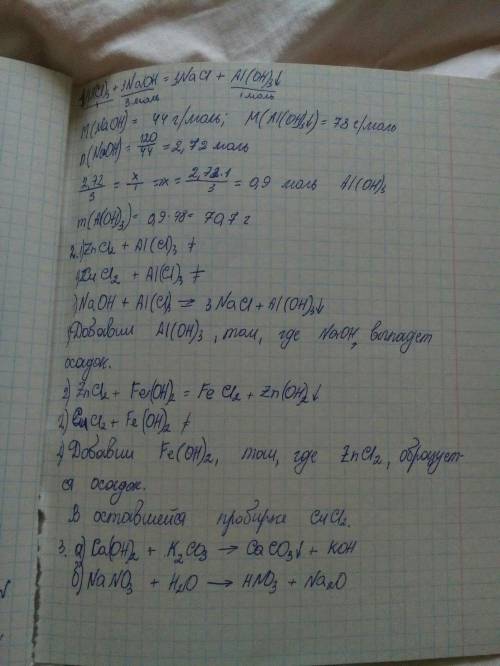 Al(Cl)₃ + 3NaOH = 3NaCl + Al(OH)₃↓
3 моль 1 моль
M(NaOH) = 44 г/моль; M(Al(OH)₃↓) = 78 г/моль
n(NaOH) = 120/44 = 2,72 моль
2,72/3 = x/1 = x = 2,72·1/3 = 0,9 моль Al(OH)₃
m(Al(OH)₃) = 0,9·78 = 70,7 г
2. 1) ZnCl₂ + Al(Cl)₃ ≠
CuCl₂ + Al(Cl)₃ ≠
NaOH + Al(Cl)₃ = 3NaCl + Al(OH)₃↓
Добавим Al(OH)₃, там, где NaOH, выпадет
осадок.
2) ZnCl₂ + Fe(OH)₂ = FeCl₂ + Zn(OH)₂↓
2) CuCl₂ + Fe(OH)₂ ≠
Добавим Fe(OH)₂, там, где ZnCl₂, образует-
ся осадок.
В оставшейся пробирке CuCl₂.
3. а) Ca(OH)₂ + K₂CO₃ → CaCO₃↓ + KOH
б) NaNO₃ + H₂O → HNO₃ + Na₂O